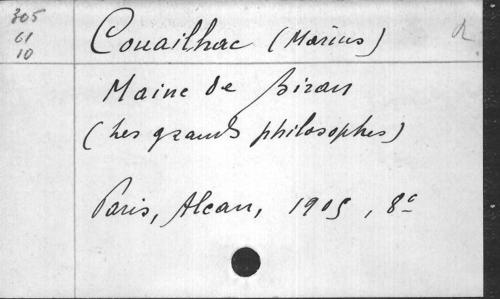 305
61
10
Couailhac (Marius)
R
Maine de Biran
(Les grands philosophes)
Paris, Alcan, 1905, 8°